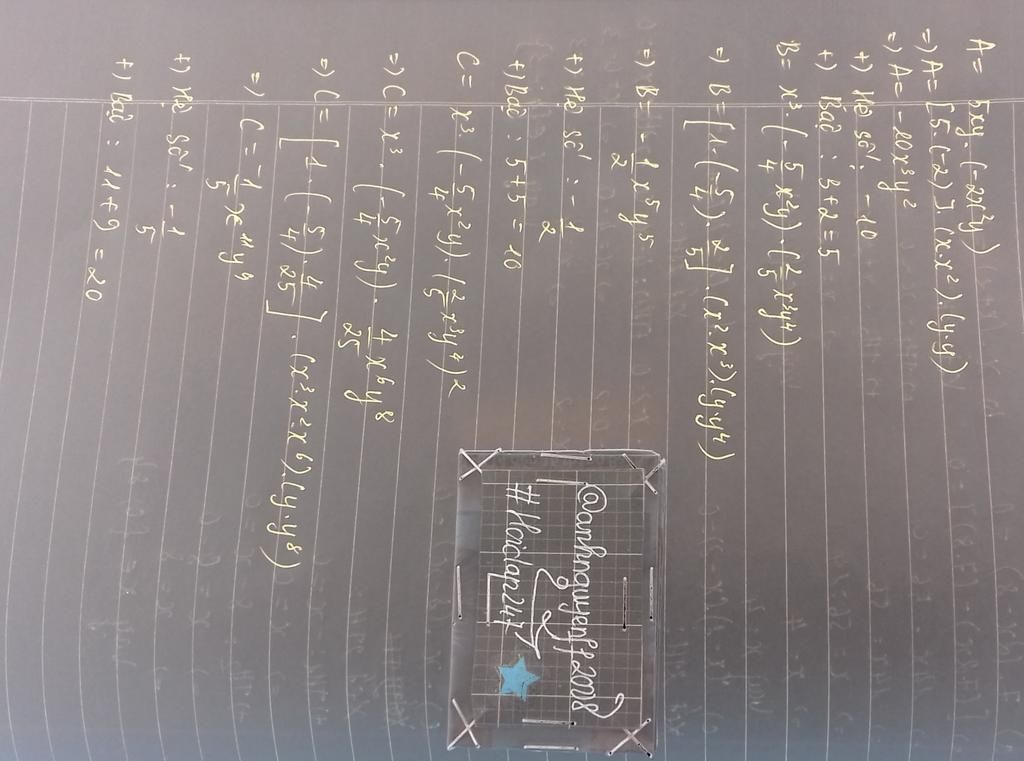 A = 5xy.(-2x²y)
=) A = [5.(-2)].(x.x²).(y.y)
=) A = -10x³y²
+) Hệ số : -10
+) Bậc : 3+2 = 5
B = x³.(-5/4 x²y).(2/5 x³y⁴)
=) B = [1.(-5/4).2/5].(x²x³)(y.y⁴)
=) B = -1/2 x⁵y⁵
+) Hệ số : -1/2
+) Bậc : 5+5 = 10
C = x³.(-5/4 x²y).(2/5 x³y⁴)²
=) C = x³.(-5/4 x²y). 4/25 x⁶y⁸
=) C = [1.(-5/4).4/25].(x³.x².x⁶)(y.y⁸)
=) C = -1/5 x¹¹y⁹
+) Hệ số : -1/5
+) Bậc : 11+9 = 20
@anhnguyenft2008
#Hoidap247